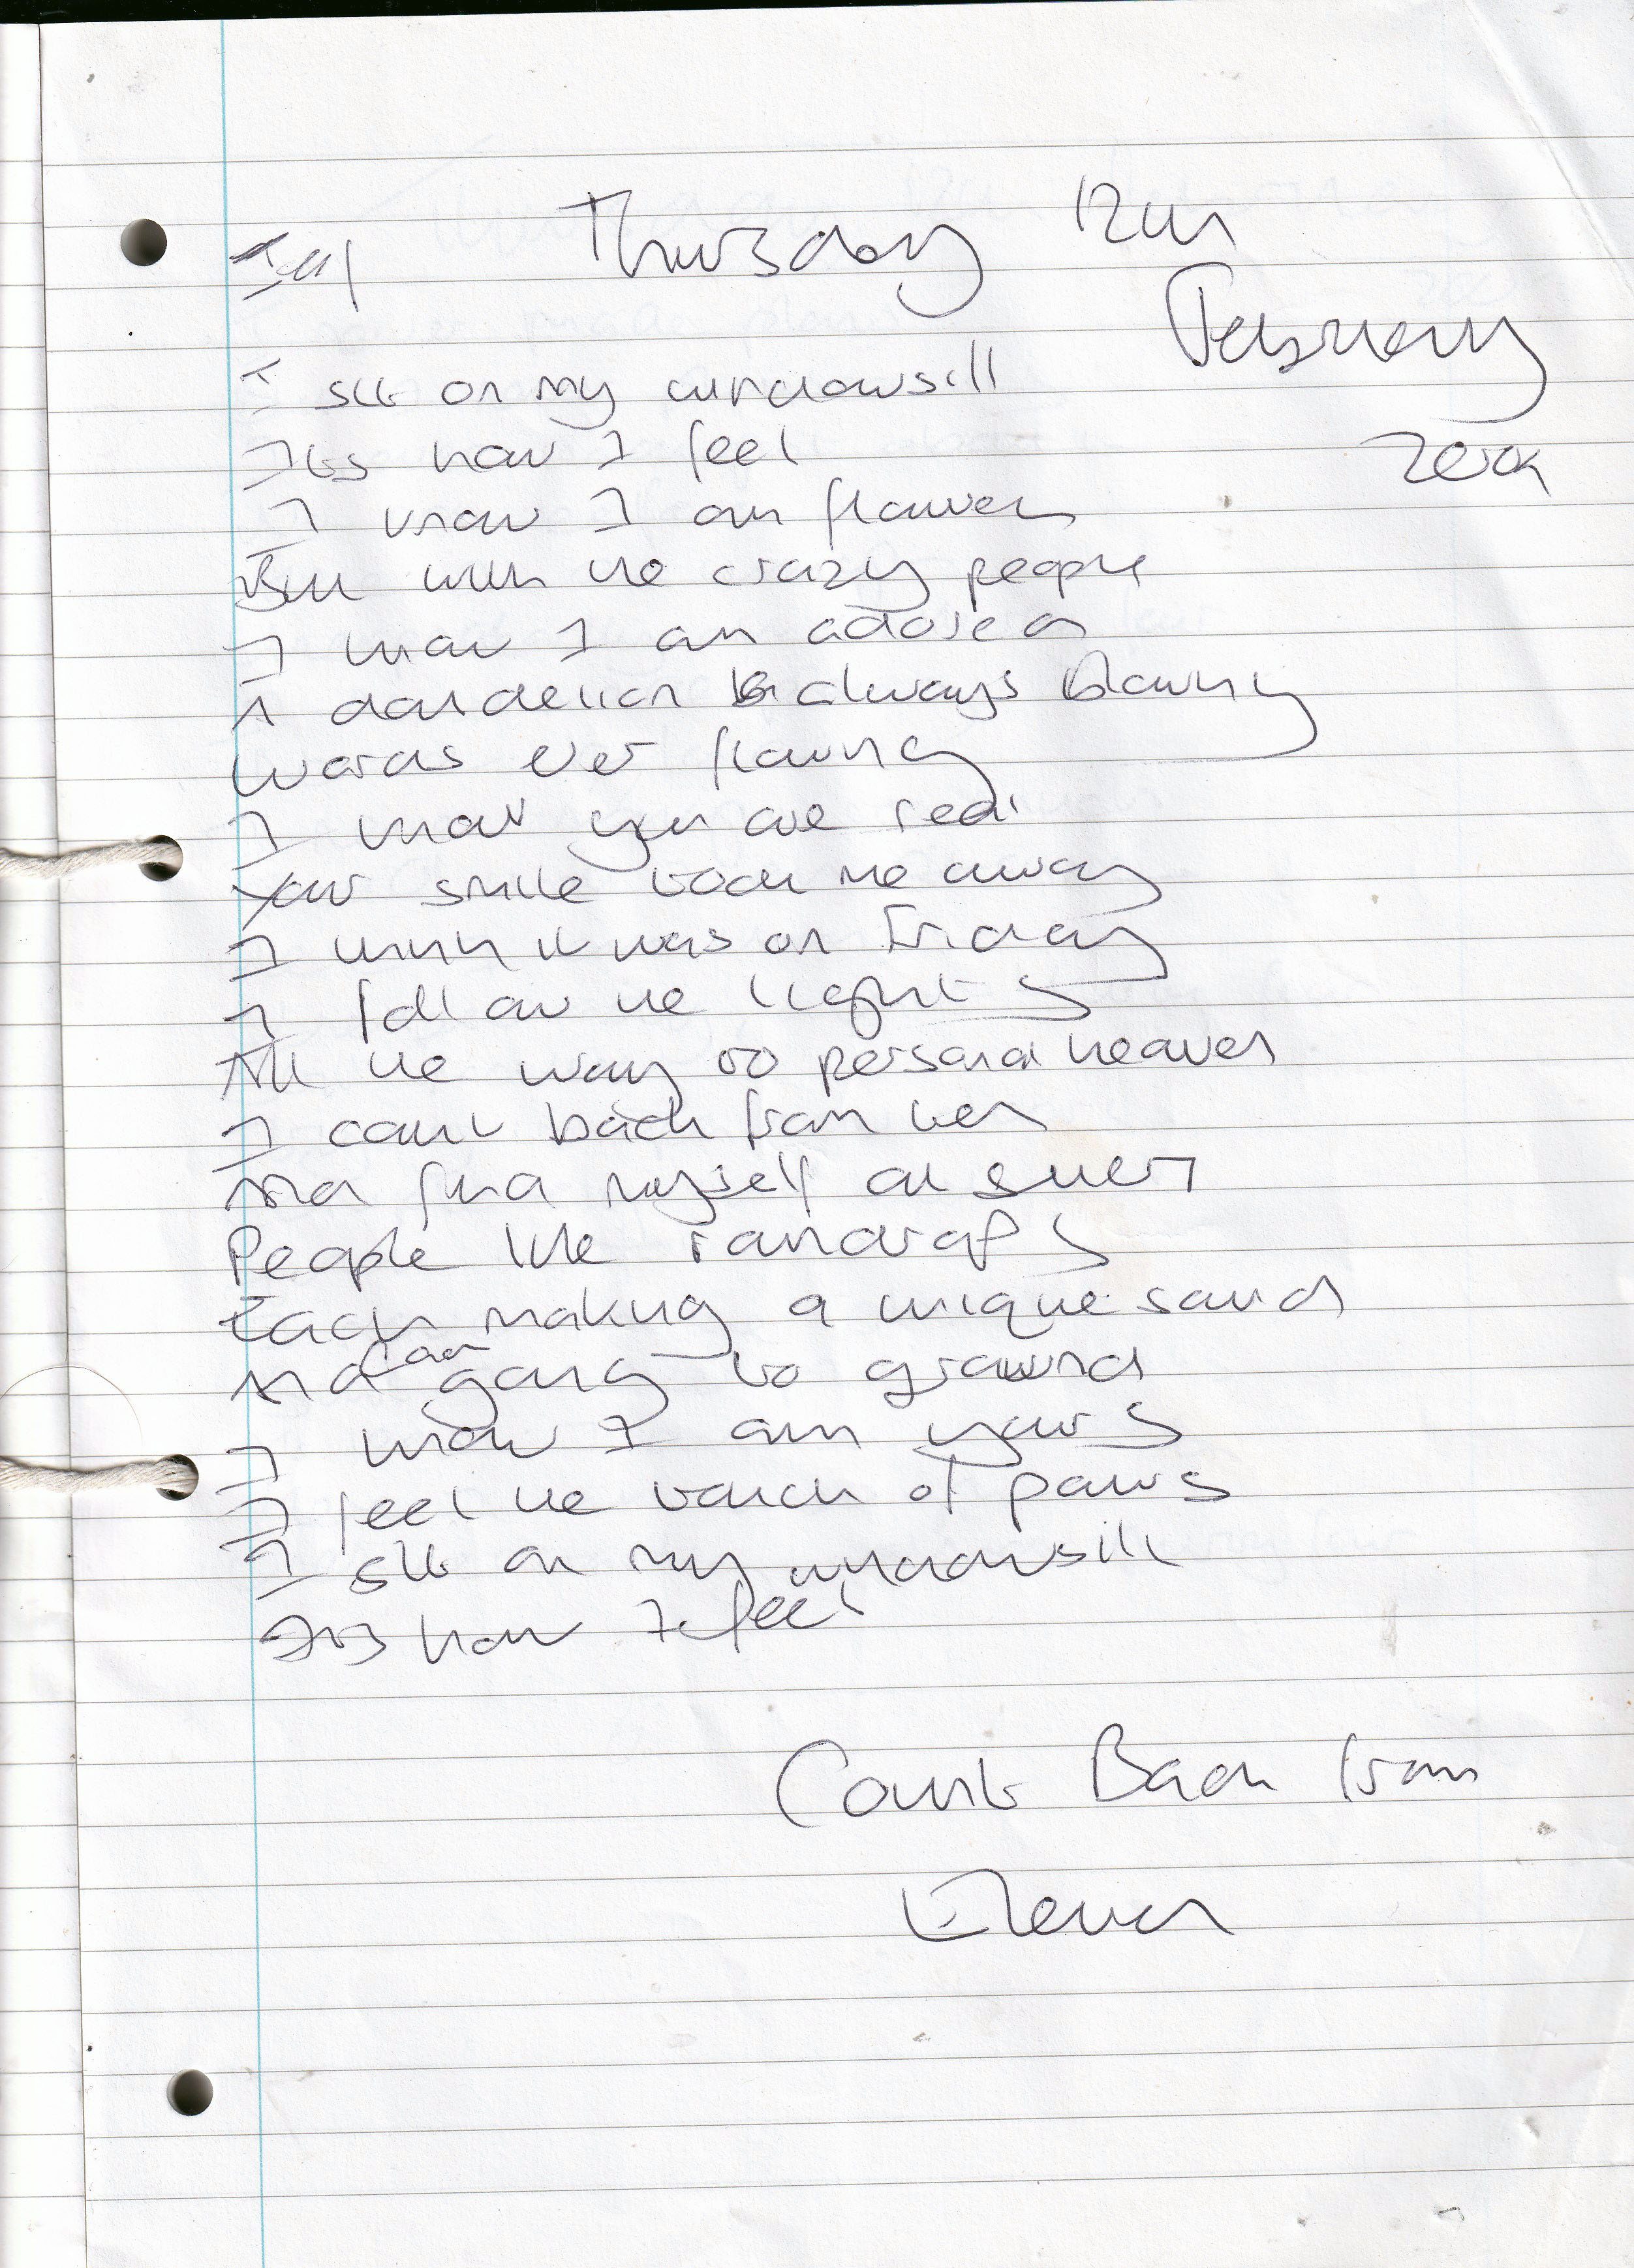 Thursday 12th
February
I sit on my windowsill
Its how I feel
I know I am flower
But with the crazy people
I know I am adored
A dandelion always blowing
Words ever flowing
I know you are real
Your smile took me away
I think it was on Friday
I follow the lights
All the way to personal heaven
I count back from ten
And find myself at
People like raindrops
Each making a unique sound
And can going to ground
I know I am yours
I feel the touch of paws
I sit on my windowsill
Its how I feel
Count Back from
Eleven